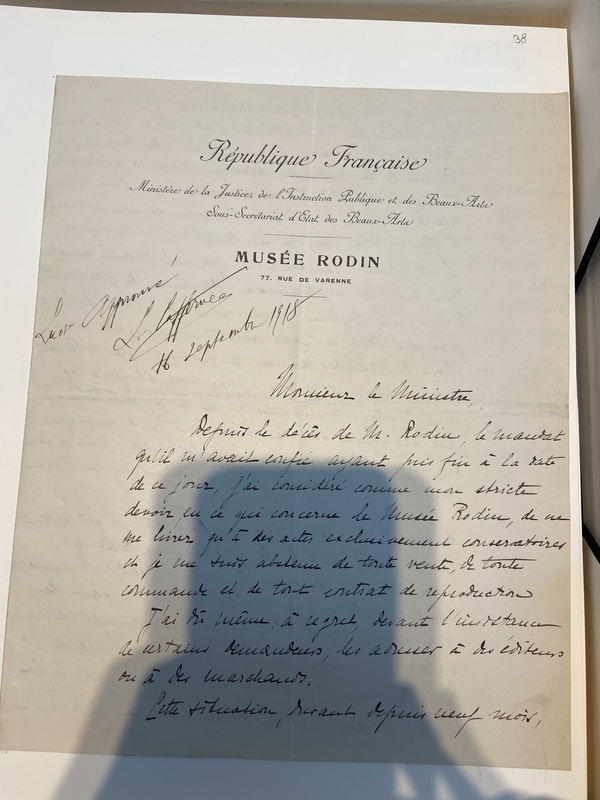 38
République Française
Ministère de la Justice, de l'Instruction Publique et des Beaux-Arts
Sous-Secrétariat d'Etat des Beaux-Arts
MUSÉE RODIN
77, RUE DE VARENNE
Lu et Approuvé
L.
16 septembre 1918
Monsieur le Ministre,
Depuis le décès de M. Rodin, le mandat
qu'il m'avait confié ayant pris fin à la date
de ce jour, j'ai considéré comme mon stricte
devoir, en ce qui concerne le Musée Rodin, de ne
me livrer qu'à des actes exclusivement conservatoires
et je me suis abstenu de toute vente, de toute
commande et de tout contrat de reproduction
J'ai dû même, à regret, devant l'insistance
de certains demandeurs, les adresser à des éditeurs
ou à des marchands.
Cette situation, durant depuis neuf mois,